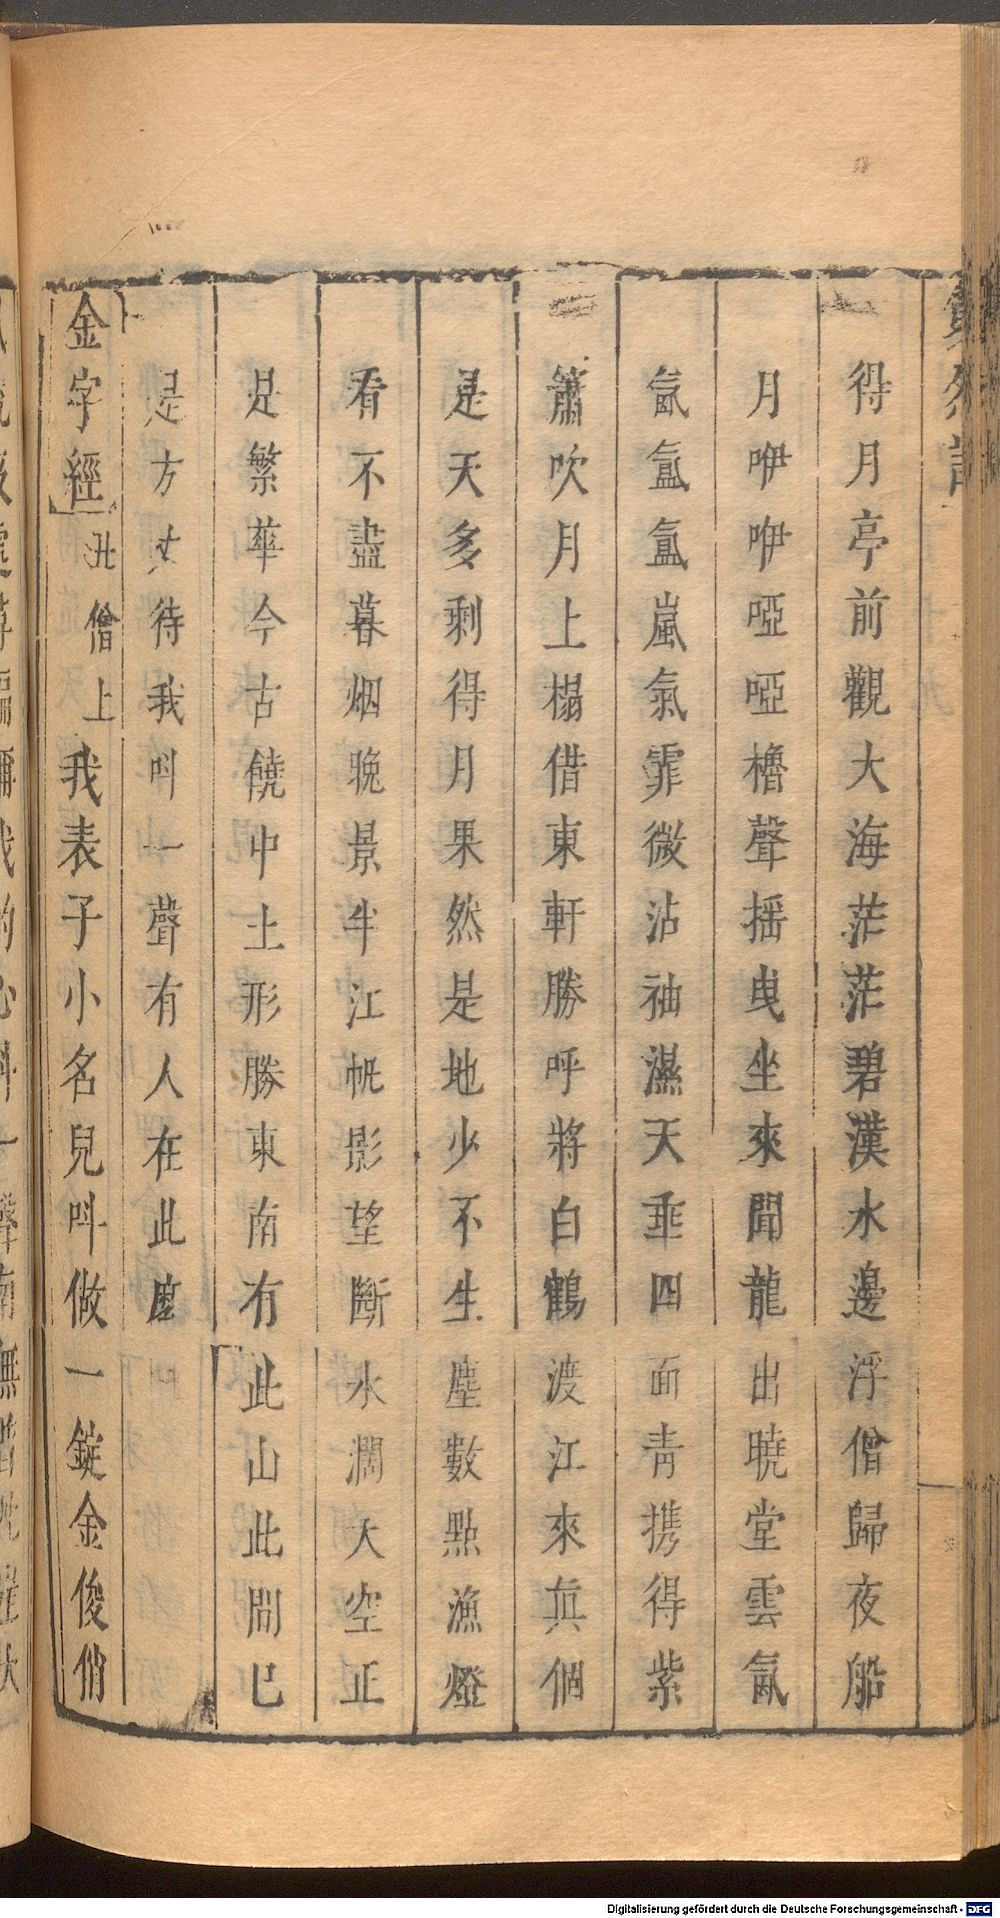 得月亭前觀大海茫茫碧漢水邊浮僧歸夜船
月咿咿啞啞櫓聲搖曳坐來聞龍出曉堂雲氣
氤氳氳嵐氣霏微沾袖濕天垂四面青携得紫
簫吹月上榻借東軒勝呼將白鶴渡江來眞個
是天多剩得月果然是地少不生塵數點漁燈
看不盡暮烟晚景半江帆影望斷水濶天空正
是繁華今古饒中土形勝東南有此山此間已
是方丈待我叫一聲有人在此麽
金字經丑僧上我表子小名兒叫做一錠金俊俏
Digitalisierung gefördert durch die Deutsche Forschungsgemeinschaft - DFG